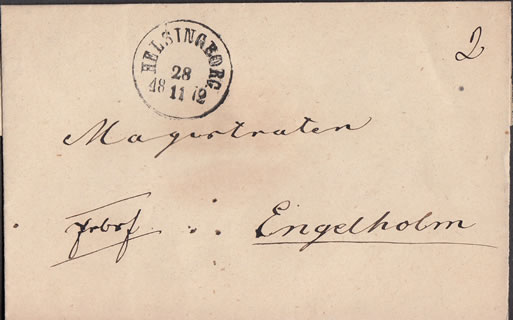 2
HELSINGBORG
28
18 11 72
Magistraten
frbrf
Engelholm